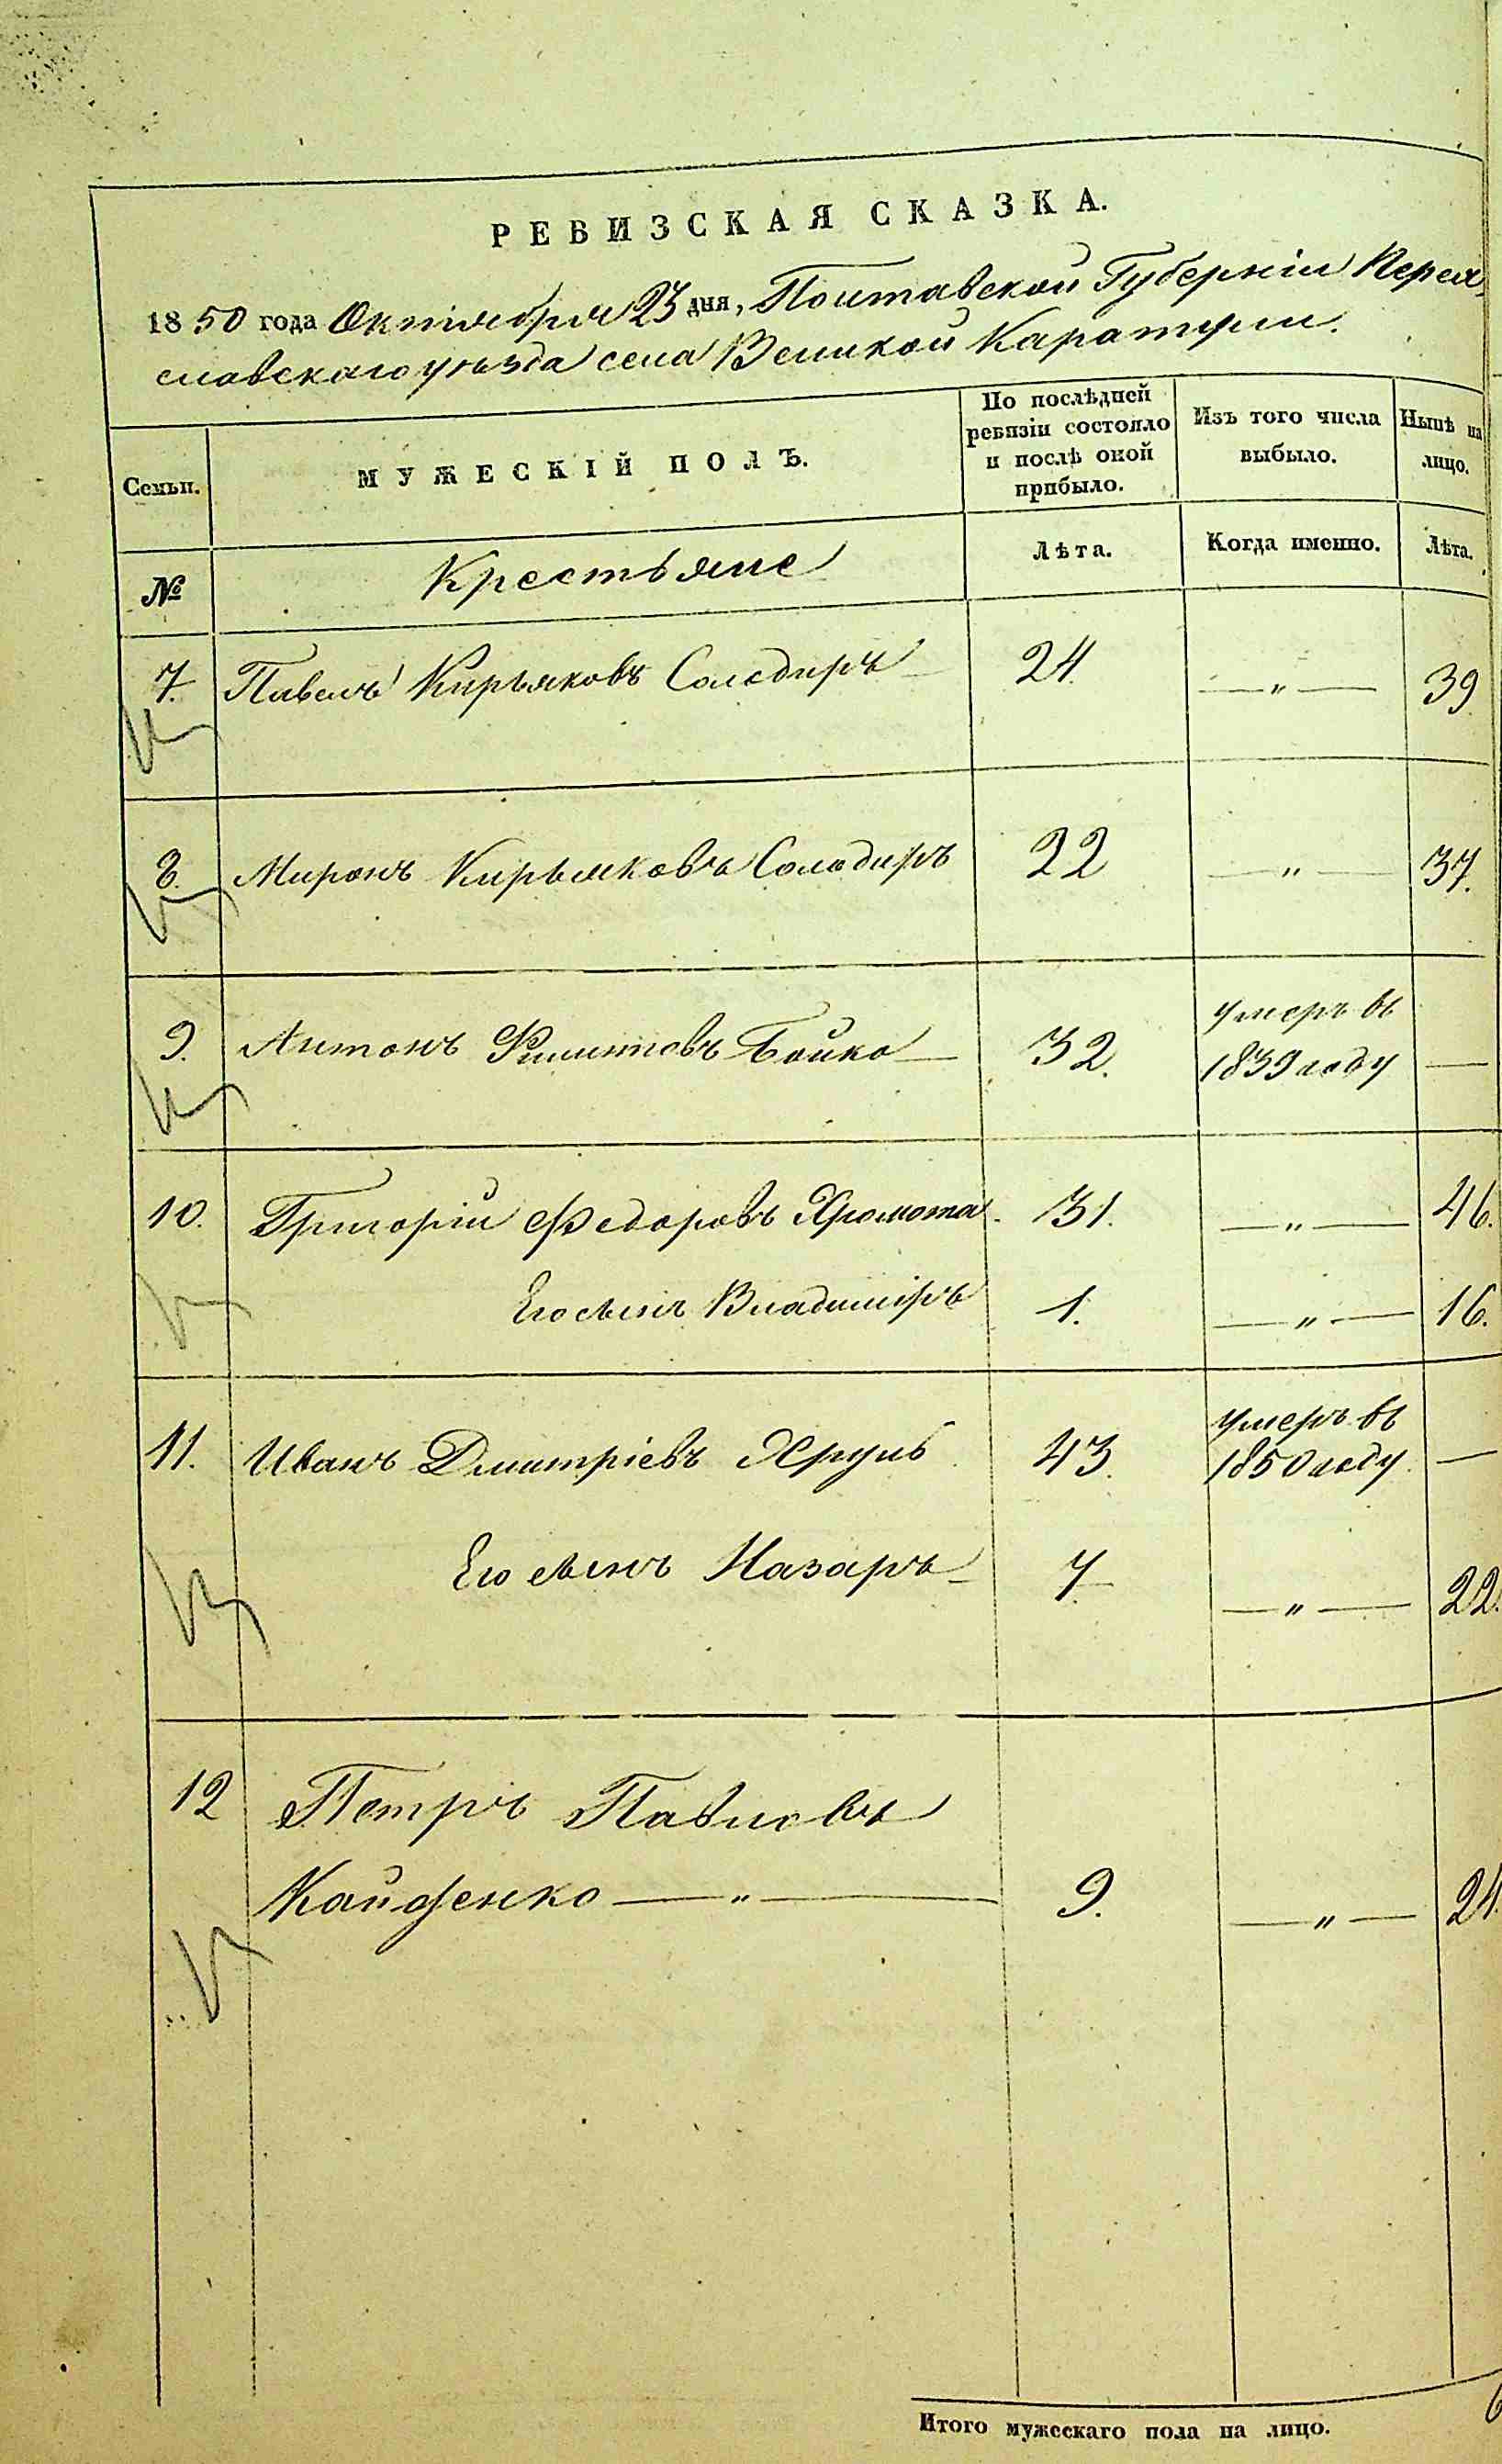 РЕВИЗСКАЯ СКАЗКА.
1850 года Октября 23 дня, Полтавской Губерніи Перея-
славскаго уѣзда села Великой Каратули.
Семьи.
МУЖЕСКІЙ ПОЛЪ.
По послѣдней
ревизіи состояло
и послѣ оной
прибыло.
Изъ того числа
выбыло.
Нынѣ на
лицо.
№
Крестьяне
Лѣта.
Когда именно.
Лѣта.
7. Павелъ Кирьяковъ Солодиръ 24. — " — 39
8. Миронъ Кирьяковъ Солодиръ 22 — " — 37.
умеръ въ
9. Антонъ Филиповъ Бойко — 32. 1839 году —
10. Григорій Федоровъ Хромота. 31. — " — 46.
Его сынъ Владиміръ 1. — " — 16.
умеръ въ
11. Иванъ Дмитріевъ Хруль 43. 1850 году. —
Его сынъ Назаръ — 7. — " — 22.
12 Петръ Павловъ
— " — 9. — " — 24.
Итого мужескаго пола на лицо.
6